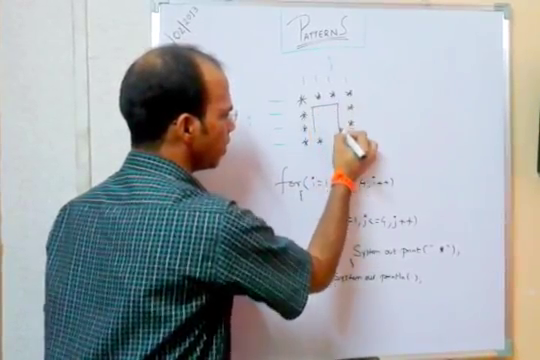 /02/2013
PATTERNS
* * * *
* *
* *
* *
for(i=1, 4, i++)
{
=1, j<=4, j++)
{ System.out.print(" *"),
}
System.out.println( ),